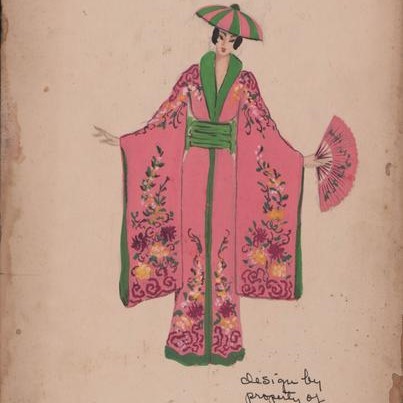 design by
property of